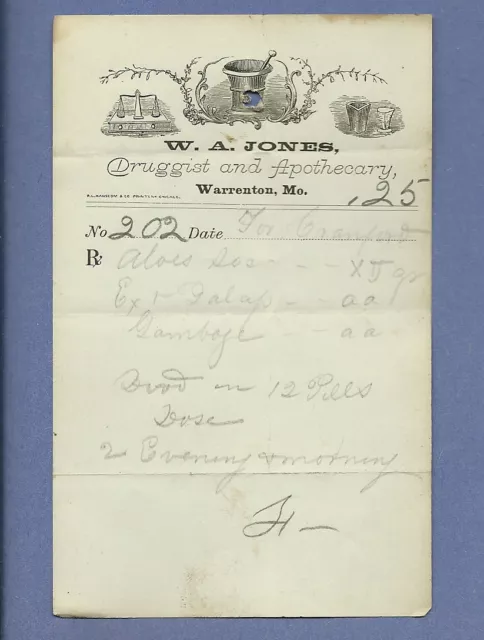 W. A. JONES,
Druggist and Apothecary,
Warrenton, Mo.
.25
No 202 Date For Cranford
Rx Aloes Soc - - XV gr
Ext Jalap - - aa
Gamboge - - aa -
Divid in 12 Pills
Dose
2 Evening & morning